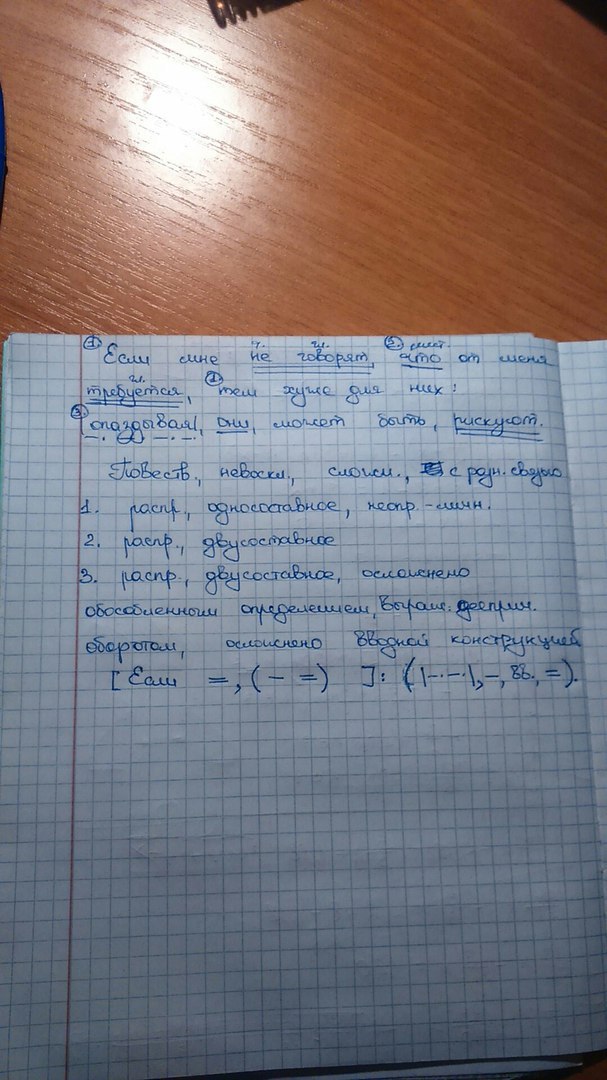 ① ч. гл. ② мест.
Если мне не говорят, что от меня
гл. ①
требуется, тем хуже для них:
③ |опаздывая|, они, может быть, рискуют.
Повеств., невоскл., сложн., с разн. связью
1. распр., односоставное, неопр.-личн.
2. распр., двусоставное
3. распр., двусоставное, осложнено
обособленным определением, выраж. дееприч.
оборотом, осложнено вводной конструкцией
[Если =, (- =) ]: (|-.-.|, -, вв., =).